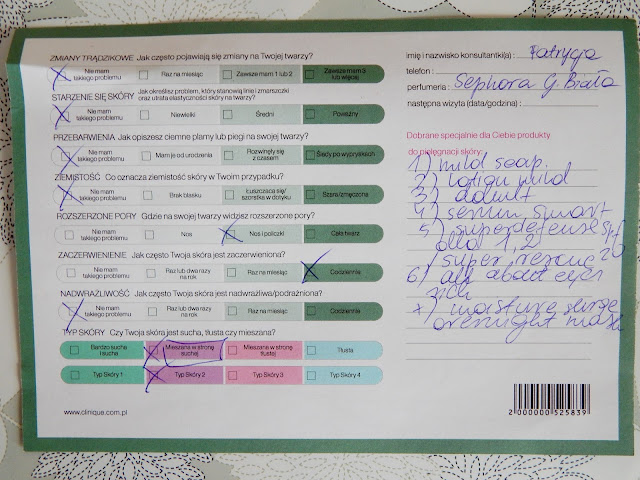 ZMIANY TRĄDZIKOWE Jak często pojawiają się zmiany na Twojej twarzy?
Nie mam takiego problemu
Raz na miesiąc
Zawsze mam 1 lub 2
Zawsze mam 3 lub więcej
STARZENIE SIĘ SKÓRY Jak określisz problem, który stanowią linie i zmarszczki
oraz utrata elastyczności skóry na twarzy?
Nie mam takiego problemu
Niewielki
Średni
Poważny
PRZEBARWIENIA Jak opiszesz ciemne plamy lub piegi na swojej twarzy?
Nie mam takiego problemu
Mam je od urodzenia
Rozwinęły się z czasem
Ślady po wypryskach
ZIEMISTOŚĆ Co oznacza ziemistość skóry w Twoim przypadku?
Nie mam takiego problemu
Brak blasku
Łuszcząca się/ szorstka w dotyku
Szara/zmęczona
ROZSZERZONE PORY Gdzie na swojej twarzy widzisz rozszerzone pory?
Nie mam takiego problemu
Nos
Nos i policzki
Cała twarz
ZACZERWIENIENIE Jak często Twoja skóra jest zaczerwieniona?
Nie mam takiego problemu
Raz lub dwa razy na rok
Raz na miesiąc
Codziennie
NADWRAŻLIWOŚĆ Jak często Twoja skóra jest nadwrażliwa/podrażniona?
Nie mam takiego problemu
Raz lub dwa razy na rok
Raz na miesiąc
Codziennie
TYP SKÓRY Czy Twoja skóra jest sucha, tłusta czy mieszana?
Bardzo sucha i sucha
Mieszana w stronę suchej
Mieszana w stronę tłustej
Tłusta
Typ Skóry 1
Typ Skóry 2
Typ Skóry 3
Typ Skóry 4
www.clinique.com.pl
Imię i nazwisko konsultantki(a) : Patrycja
telefon :
perfumeria : Sephora G. Biała
następna wizyta (data/godzina) :
Dobrane specjalnie dla Ciebie produkty
do pielęgnacji skóry:
1) mild soap.
2) lotion mild
3)
4) serum smart
5) superdefense spf 20
dla 1, 2
/ super rescue
6) all about eyes
rich
moisture surge
overnight mask
2 000000 525839